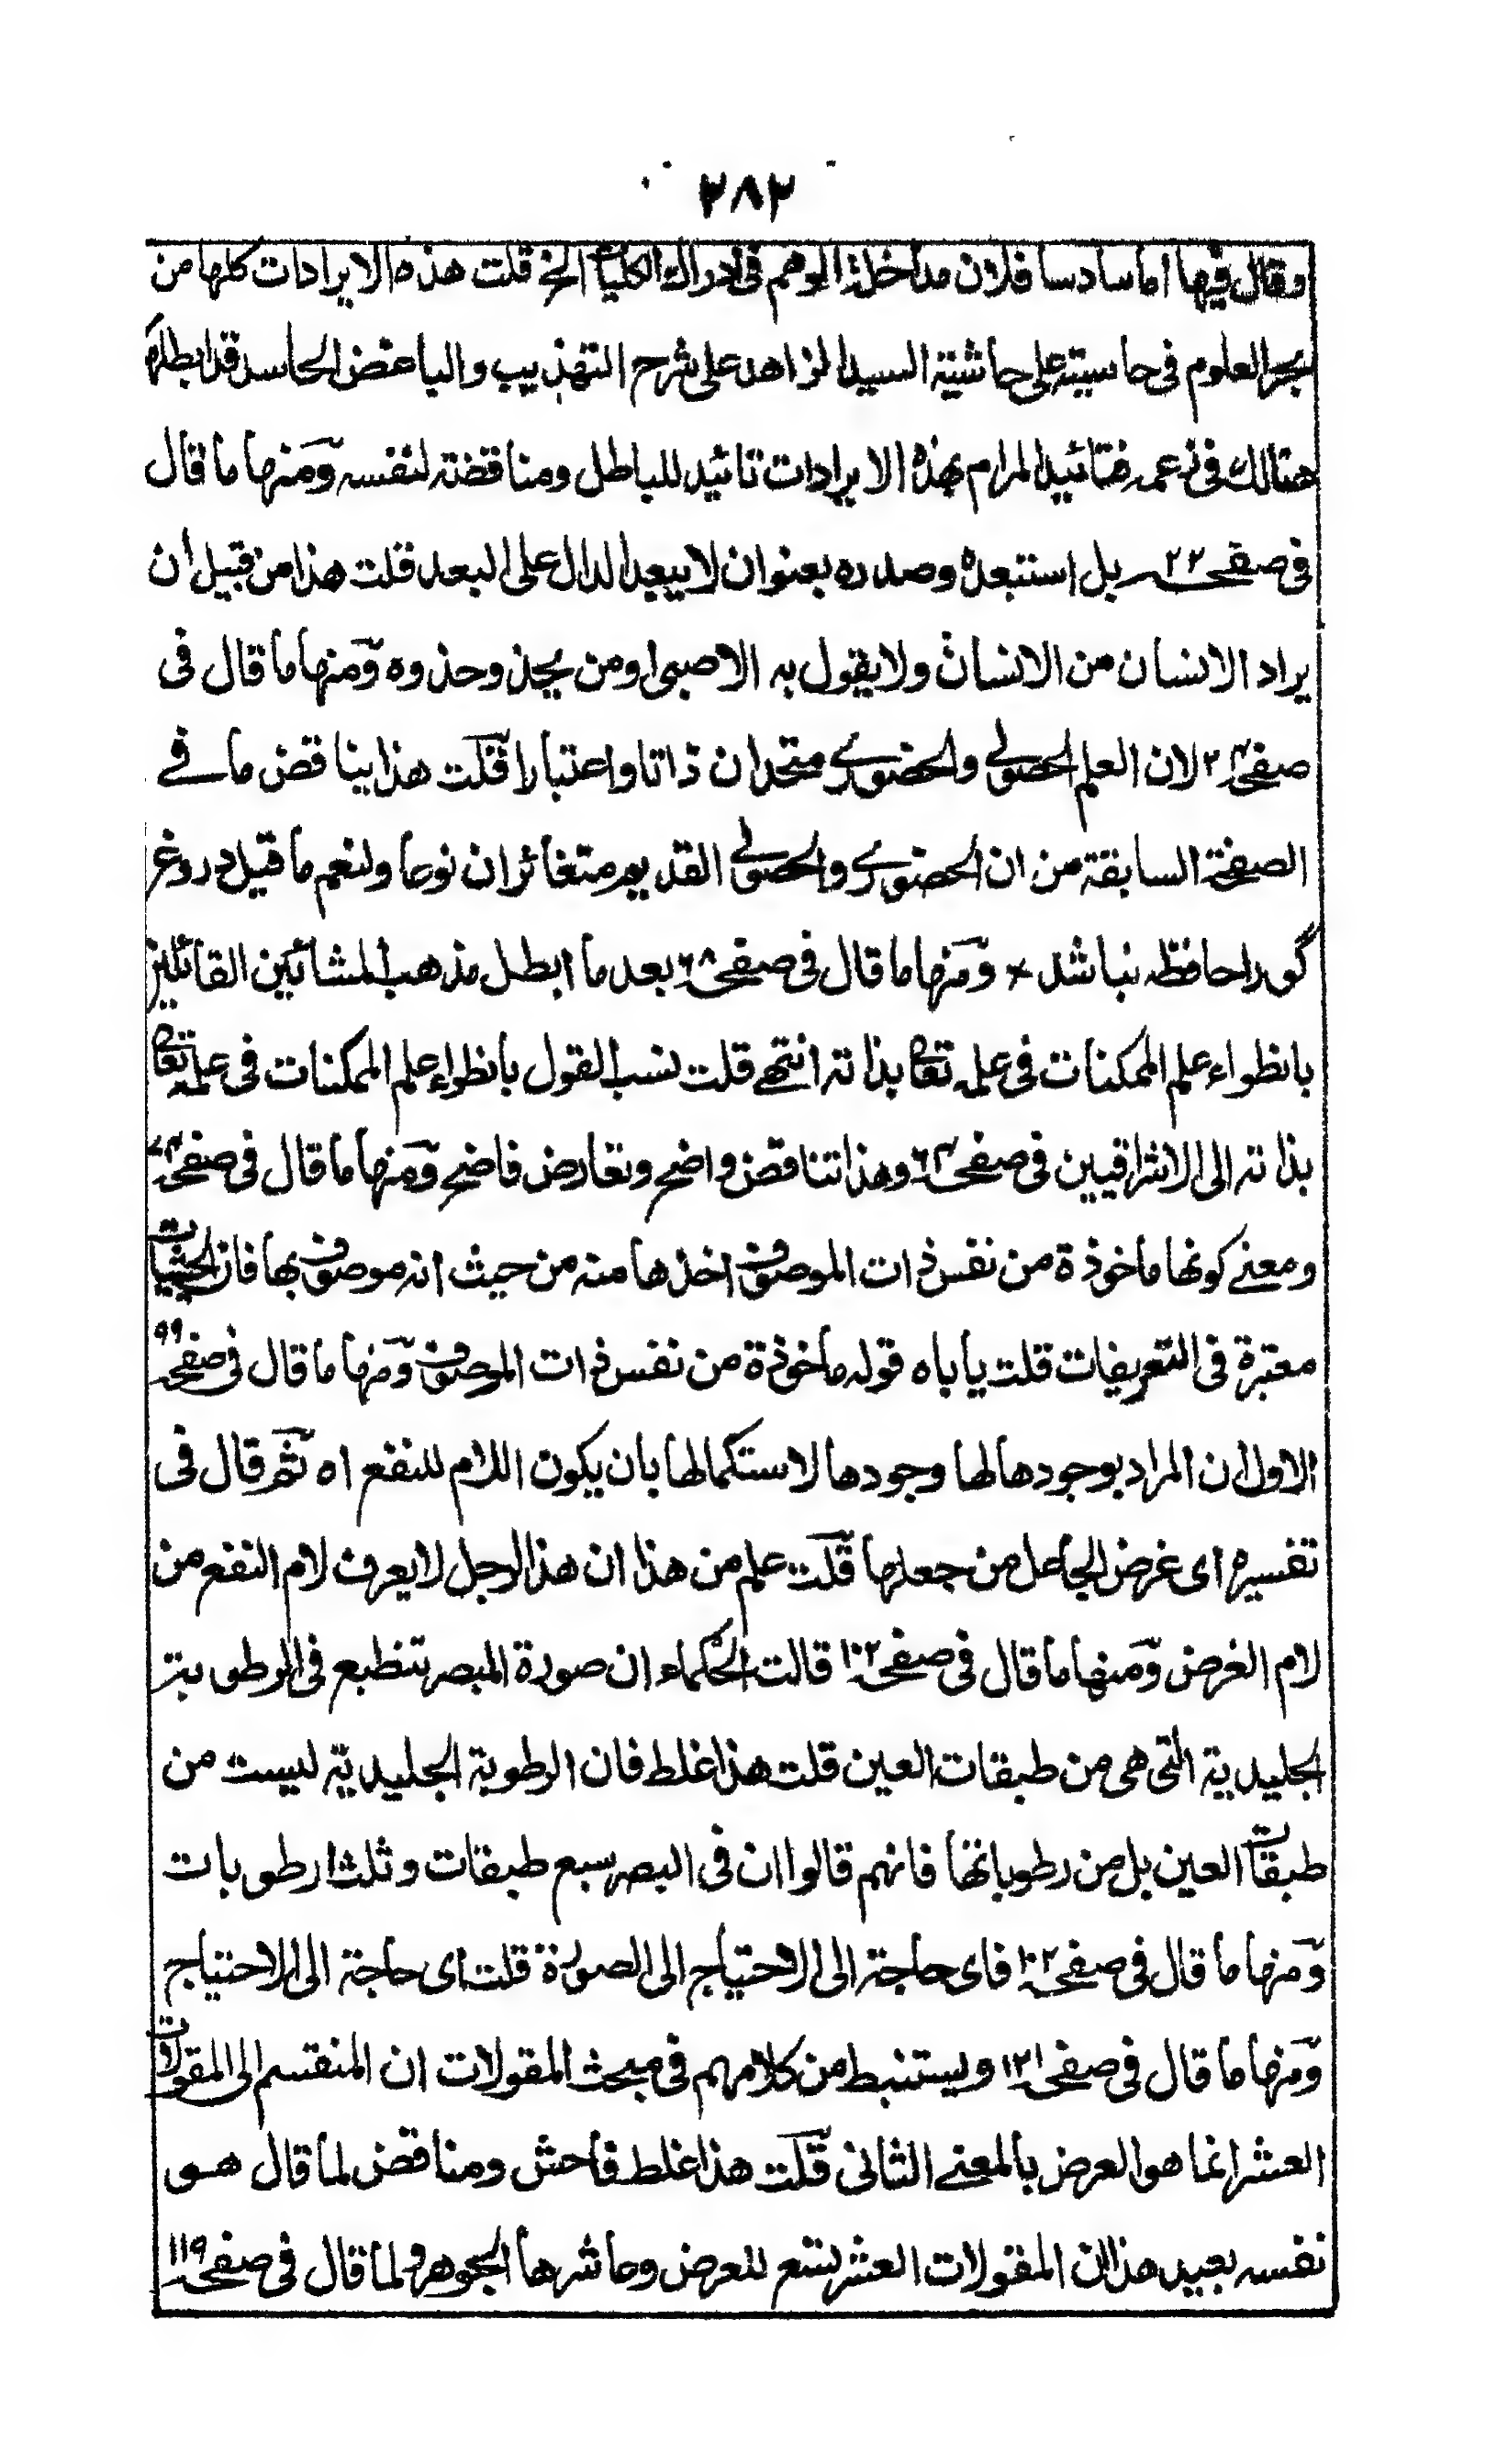 ٢٨٢
وقال فيها اما سادسا فلان مداخلة الوهم فى ادراك الكليات الخ قلت هذه الايرادات كلها من
بحر العلوم فى حاسيته على حاشية السيد الزاهد على شرح التهذيب والباغض الحاسد قد ابطله
هنالك فى زعمه فتائيد المرام بهذه الايرادات تائيد للباطل ومناقضة لنفسه ومنها ما قال
فى صفحه ٢٢ بل استبعده وصدره بعنوان لا يبعد الدال على البعد قلت هذا من قبيل ان
يراد الانسان من الانسان ولا يقول به الا صبى او من يحذو حذوه ومنها ما قال فى
صفحه لان العلم الحصولى والحضورى متحدان ذاتا واعتبارا قلت هذا يناقض ما فے
الصفحة السابقة من ان الحضورى والحصولى القديم متغائران نوعا ولنعم ما قيل دروغ
گو را حافظه نباشد × ومنها ما قال فى صفحه ٦٨ بعد ما ابطل مذهب المشائين القائلين
بانطواء علم الممكنات فى علمه تعالى بذاته انتهے قلت نسب القول بانطواء علم الممكنات فى علمه تعالى
بذاته الى الاشراقيين فى صفحه ٦٣ وهذا تناقض واضح وتعارض فاضح ومنها ما قال فى صفحه
ومعنے كونها ماخوذة من نفس ذات الموصوف اخذها منه من حيث انه موصوف بها فان الحيثيات
معتبرة فى التعريفات قلت ياباه قوله ماخوذة من نفس ذات الموصوف ومنها ما قال فى صفحه ٩٩
الاول ان المراد بوجودها لها وجودها لاستكمالها بان يكون اللام للنفع اه ثم قال فى
تفسيره اى غرض الجاعل من جعلها قلت علم من هذا ان هذا الرجل لا يعرف لام النفع من
لام الغرض ومنها ما قال فى صفحه ١٠٢ قالت الحكماء ان صورة المبصر تنطبع فى الرطوبة
الجليدية التى هى من طبقات العين قلت هذا غلط فان الرطوبة الجليدية ليست من
طبقات العين بل من رطوباتها فانهم قالوا ان فى البصر سبع طبقات وثلث رطوبات
ومنها ما قال فى صفحه ١٠٢ فاى حاجة الى الاحتياج الى الصورة قلت اى حاجة الى الاحتياج
ومنها ما قال فى صفحه ١٢١ ويستنبط من كلامهم فى مبحث المقولات ان المنقسم الى المقولات
العشر انما هو العرض بالمعنے الثانى قلت هذا غلط فاحش ومناقض لما قال هو
نفسه بعيد هذا ان المقولات العشر تسع للعرض وعاشرها الجوهر ولما قال فى صفحه ١١٩